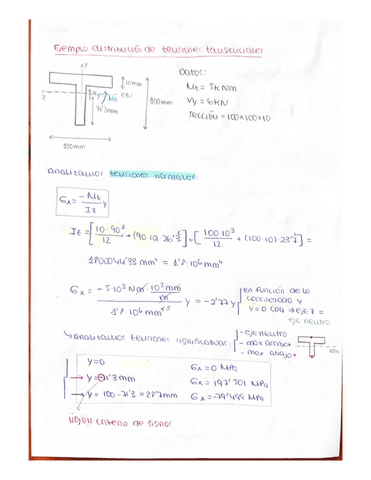 Ejemplo distribución de tensiones tangenciales
y
10mm
z
Mt
6kN
100mm
71'3mm
100mm
Datos:
Mt = 5kNm
Vy = 6kN
Sección = 100×100×10
Analizamos tensiones normales:
σx = -Mt/Iz y
Iz = [10·90³/12 + (90·10)·26'3²] + [100·10³/12 + (100·10)·23'7²] =
1800044'33 mm⁴ = 1'8·10⁶ mm⁴
σx = -5·10³ Nm · 10³mm/m / 1'8·10⁶ mm⁴ y = -2'77y
en función de la
coordenada y
y=0 → eje z =
eje neutro
→ analizamos tensiones significativas:
- eje neutro
- max arriba
- max abajo
y=0
σx = 0 MPa
→ y = -71'3mm
σx = 197'501 MPa
→ y = 100-71'3mm = 28'7mm
σx = -79'499 MPa
criterio de signos